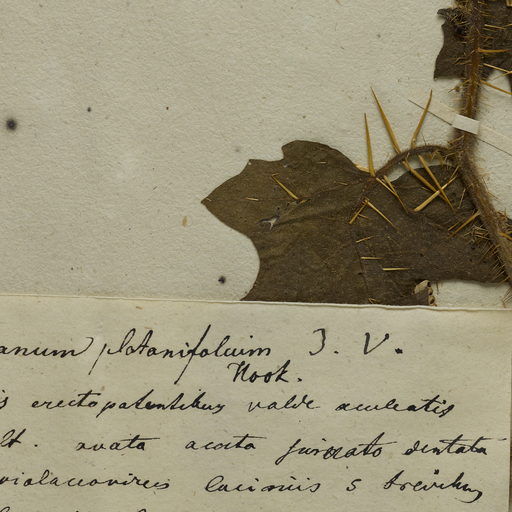 anum platanifolium J. V.
Hook.
is erectopatentibus valde aculeatis
lt. ovata acuta sinuato dentata
violaceovires laciniis 5 brevibus